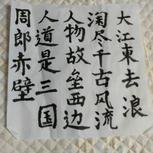 大江東去浪
淘尽千古风流
人物故垒西边
人道是三国
周郎赤壁